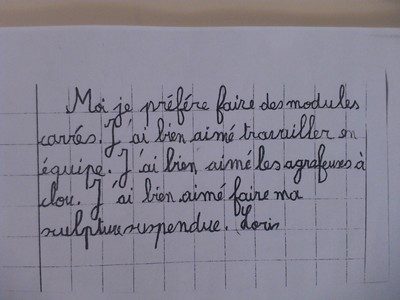 Moi je préfére faire des modules
carrés. J'ai bien aimé travailler en
équipe. J'ai bien aimé les agrafeuses à
clou. J'ai bien aimé faire ma
sculpture suspendue. Loris